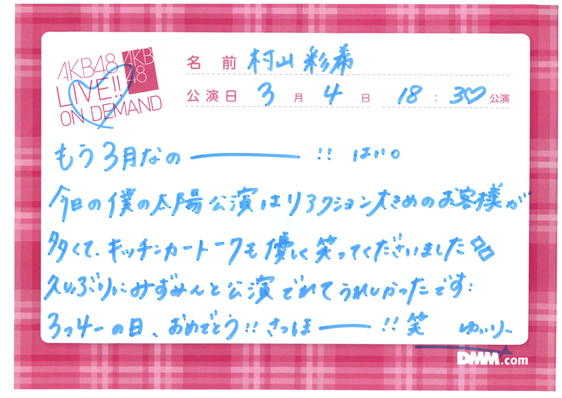 AKB48
LIVE!!
ON DEMAND
AKB
48
名前 村山彩希
公演日 3月4日 18:30公演
もう3月なの────!! はい。
今日の僕の太陽公演はリアクション大きめのお客様が
多くて、キッチンカートークも優しく笑ってくださいました
久しぶりにみずみんと公演でれてうれしかったです!
3っ4ーの日、おめでとう!! さっほ───!!笑 ゆいりー
DMM.com